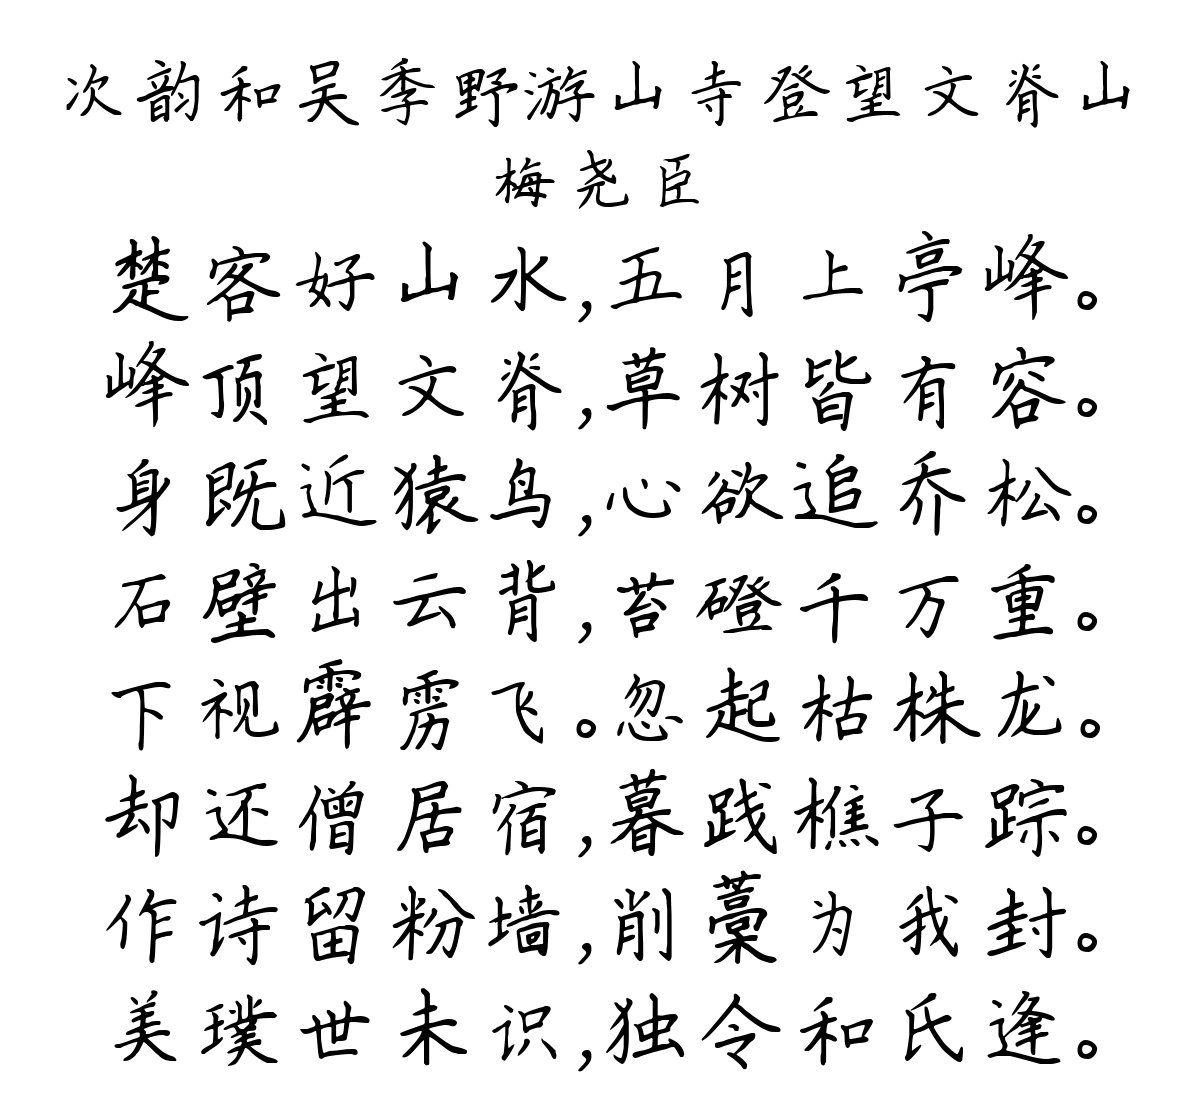 次韵和吴季野游山寺登望文脊山
梅尧臣
楚客好山水,五月上亭峰。
峰顶望文脊,草树皆有容。
身既近猿鸟,心欲追乔松。
石壁出云背,苔磴千万重。
下视霹雳飞。忽起枯株龙。
却还僧居宿,暮践樵子踪。
作诗留粉墙,削藁为我封。
美璞世未识,独令和氏逢。